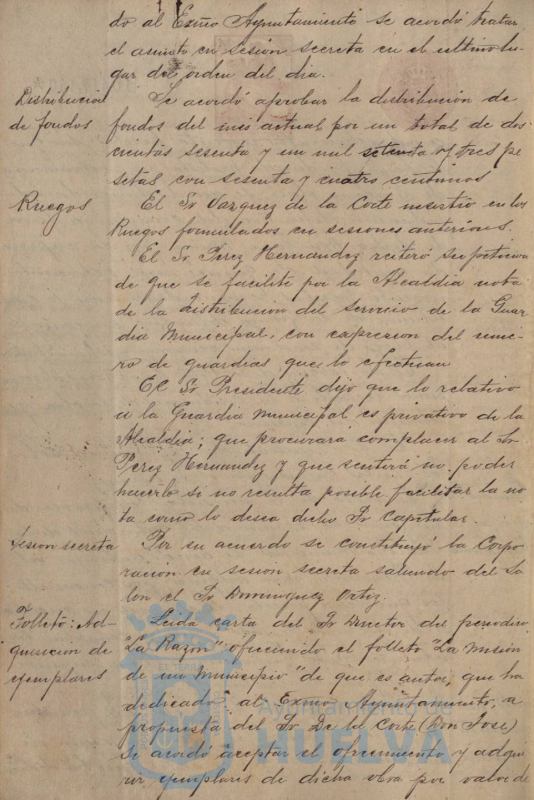 do al Exmo Ayuntamiento se acordó tratar
el asunto en sesión secreta en el ultimo lu-
gar del orden del dia.
Distribucion
de fondos
Se acordó aprobar la distribución de
fondos del mes actual por un total de dos-
cientas sesenta y un mil setenta y tres pe
setas con sesenta y cuatro centimos
Ruegos
El Sr Vazquez de la Corte insistió en los
Ruegos formulados en sesiones anteriores.
El Sr Perez Hernandez reiteró su peticion
de que se facilite por la Alcaldia nota
de la Distribucion del servicio de la Guar
dia Municipal, con expresion del nume-
ro de guardias que lo efectuan
El Sr Presidente dijo que lo relativo
á la Guardia Municipal es privativo de la
Alcaldia; que procurará complacer al Sr
Perez Hernandez y que sentirá no poder
hacerlo si no resulta posible facilitar la no
ta como lo desea dicho Sr Capitular.
Sesion secreta
Por su acuerdo se constituyó la Corpo-
ración en sesión secreta saliendo del Sa
lon el Sr Dominguez Ortiz.
Folleto: Ad-
quisicion de
ejemplares
Leida carta del Sr Director del periodico
"La Razón" ofreciendo el folleto "La Misión
de un Municipio" de que es autor, que ha
dedicado al Exmo Ayuntamiento, a
propuesta del Sr De la Corte (Don Jose)
se acordó aceptar el ofrecimiento y adqui
rir ejemplares de dicha obra por valor de
Ayuntamiento de
HUELVA